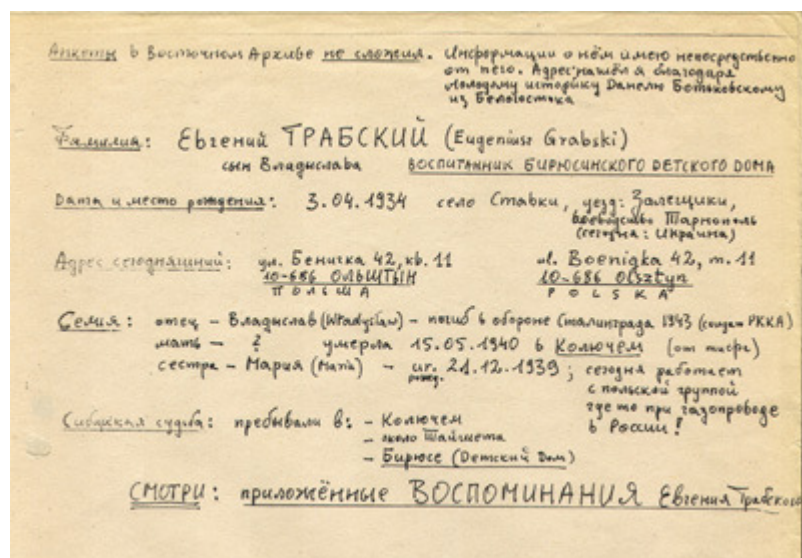 Анкеты в Восточном Архиве не сложил. Информации о нём имею непосредственно
от него. Адрес нашёл я благодаря
молодому историку Данелю Ботьковскому
из Белостока
Фамилия: Евгений ГРАБСКИЙ (Eugeniusz Grabski)
сын Владислава ВОСПИТАННИК БИРЮСИНСКОГО DЕТСКОГО DОМА
Dата и место рождения: 3.04.1934 село Ставки, уезд: Залещики,
воеводство Тарнополь
(сегодня: Украина)
Адрес сегодняшний: ул. Беничка 42, кв. 11 ul. Boenigka 42, m. 11
10-686 ОЛЬШТЫН 10-686 Olsztyn
ПОЛЬША POLSKA
Семия: отец – Владислав (Władysław) – погиб в обороне Сталинграда 1943 (солдат РККА)
мать – ? умерла 15.05.1940 в Колючем (от тифа)
сестра – Мария (Maria) – ur. 21.12.1939; сегодня работает
рожд. с польской группой
где то при газопроводе
в России!
Сибирская судьба: пребывали в: – Колючем
– около Тайшета
– Бирюсе (Детский Dом)
СМОТРИ: приложённые ВОСПОМИНАНИЯ Евгения Грабского